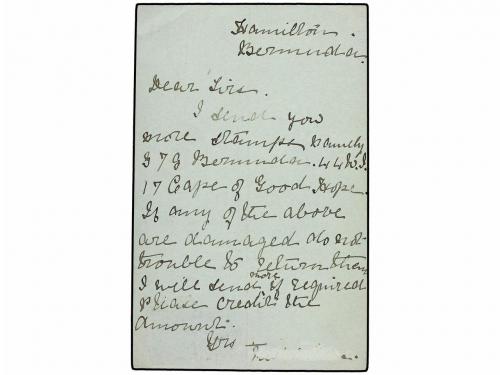 Hamilton.
Bermuda.
Dear Sirs.
I send you
more stamps namely
379 Bermuda. 44 W.I.
17 Cape of Good Hope.
If any of the above
are damaged do not
trouble to return them
I will send more if required
Please credit the
amount.
Yrs